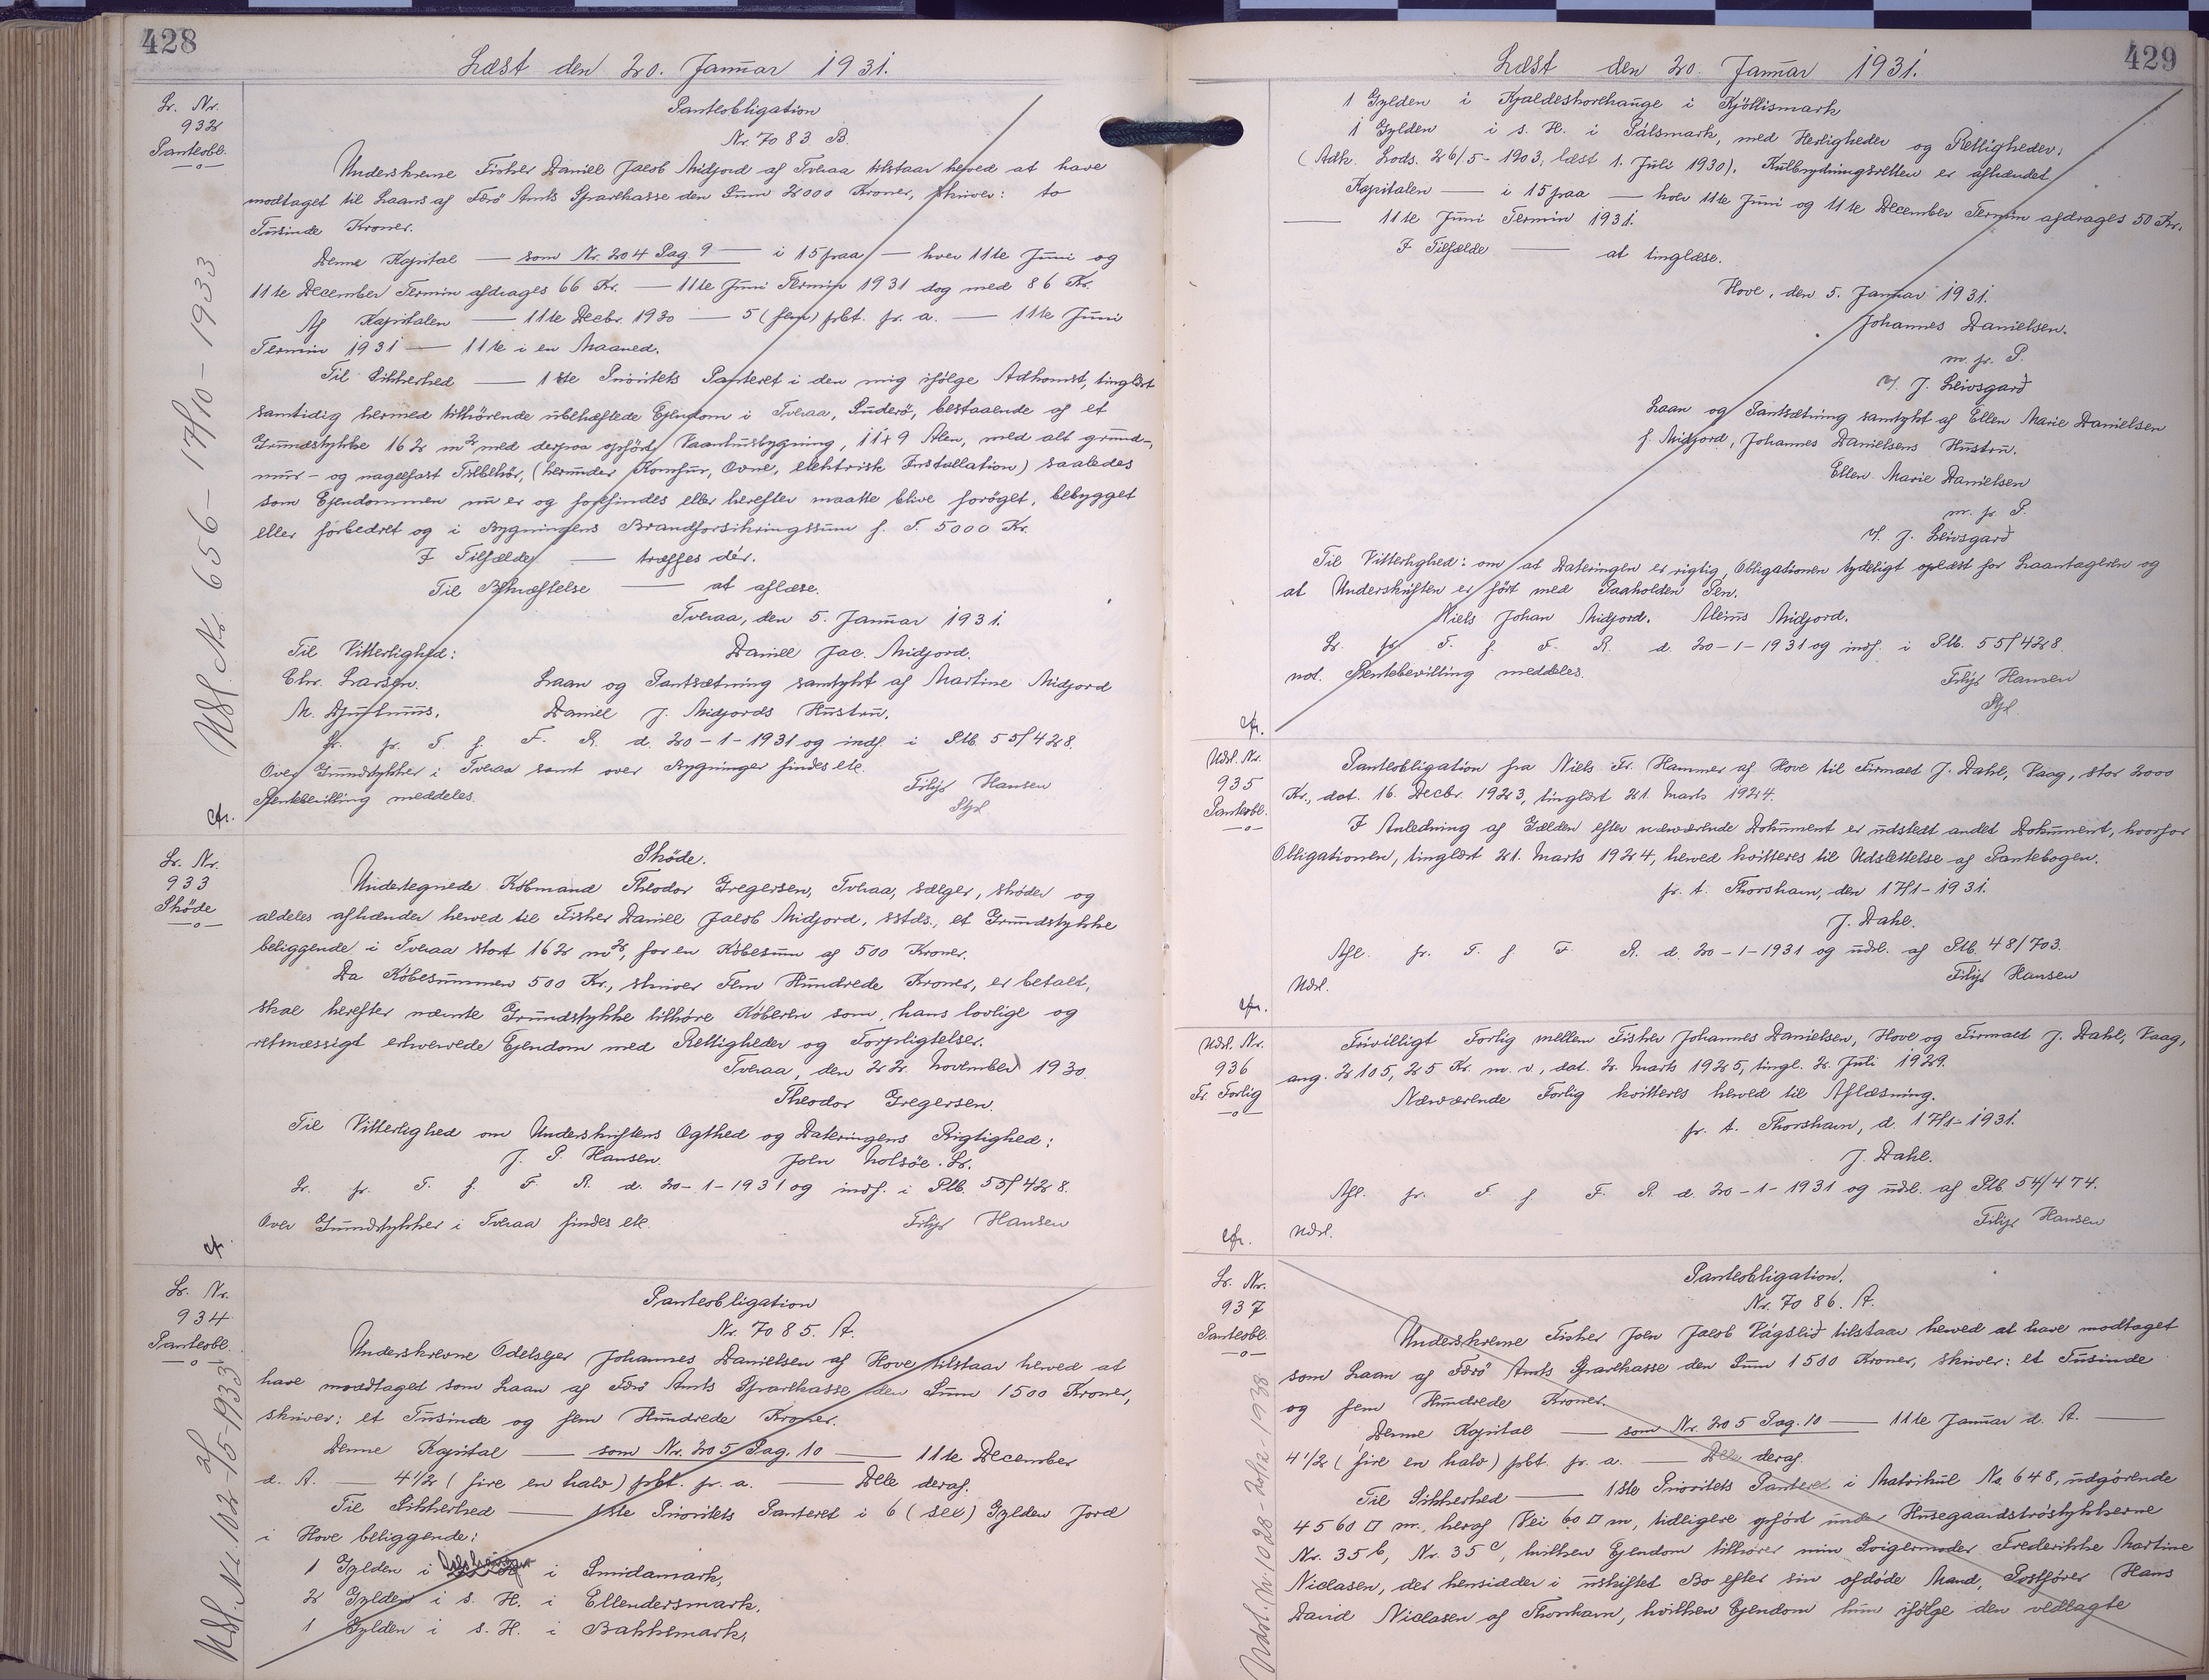 428
Læst den 20. Januar 1931.
Lr. Nr.
932
Panteobl.
Panteobligation
Nr. 7083 B.
Underskrevne Fisker Daniel Jacob Midjord af Tveraa tilstaar herved at have
modtaget til Laans af Færö Amts Sparekasse den Sum 2000 Kroner, skriver: to
Tusinde Kroner.
Denne Kapital — som Nr. 204 Pag 9 — i 15 paa — hver 11te Juni og
11te December Termin afdrages 66 Kr. — 11te Juni Termin 1931 dog med 86 Kr.
Af Kapitalen — 11te Decbr. 1930 — 5 (fem) pbt. pr. a. — 11te Juni
Termin 1931 — 11te i en Maaned.
Til Sikkerhed — 1ste Prioritets Panteret i den mig ifölge Adkomst, tinglæst
samtidig hermed tilhörende ubehæftede Ejendom i Tveraa, Suderö, bestaaende af et
Grundstykke 162 m² med derpaa opfört Vaanhusbygning, 11 x 9 Alen, med alt grund-,
mur- og nagelfast Tilbehör, (herunder Komfur, Ovne, elektrisk Installation) saaledes
som Ejendommen nu er og forefindes eller herefter maatte blive foröget, bebygget
eller forbedret og i Bygningens Brandforsikringssum f. T. 5000 Kr.
I Tilfælde — træffes dér.
Til Bekræftelse — at aflæse.
Tveraa, den 5. Januar 1931.
Til Vitterlighed: Daniel Jac. Midjord.
Chr. Larsen. Laan og Pantsætning samtykt af Martine Midjord
M. Djurhuus. Daniel J. Midjords Hustru.
Lr. pr. T. f. F. R. d. 20-1-1931 og indf. i Ptb. 55/428.
Over Grundstykker i Tveraa samt over Bygninger findes etc.
Rentebevilling meddeles. Filip Hansen
Sst
cfr.
Udsl. Nr. 656 - 17/10 - 1933
Lr. Nr.
933
Sköde
Sköde.
Undertegnede Köbmand Theodor Gregersen, Tveraa, sælger, sköder og
aldeles afhænder herved til Fisker Daniel Jacob Midjord, sstds., et Grundstykke
beliggende i Tveraa stort 162 m², for en Köbesum af 500 Kroner.
Da Köbesummen 500 Kr., skriver Fem Hundrede Kroner, er betalt,
skal herefter nævnte Grundstykke tilhöre Köberen som hans lovlige og
retmæssigt erhvervede Ejendom med Rettigheder og Forpligtelser.
Tveraa, den 22. November 1930.
Theodor Gregersen.
Til Vitterlighed om Underskriftens Ægthed og Dateringens Rigtighed:
J. P. Hansen. Joen Nolsöe. Lr.
Lr. pr. T. f. F. R. d. 20-1-1931 og indf. i Ptb. 55/428.
Over Grundstykker i Tveraa findes etc. Filip Hansen
cfr.
Lr. Nr.
934
Panteobl.
Panteobligation
Nr. 7085. A.
Underskrevne Odelsejer Johannes Danielsen af Hove tilstaar herved at
have modtaget som Laan af Færö Amts Sparekasse den Sum 1500 Kroner,
skriver: et Tusinde og fem Hundrede Kroner.
Denne Kapital — som Nr. 205 Pag. 10 — 11te December
d. A. — 4 1/2 (fire en halv) pbt. pr. a. — Dele deraf.
Til Sikkerhed — 1ste Prioritets Panteret i 6 (sex) Gylden Jord
i Hove beliggende:
1 Gylden i i Smidamark,
2 Gylden i s. H. i Ellendersmark,
1 Gylden i s. H. i Bakkemark,
Udsl. Nr. 102 - 2/5 - 1933
429
Læst den 20. Januar 1931.
1 Gylden i Kjaldeshorlhauge i Kjöllismark
1 Gylden i s. H. i Pálsmark, med Herligheder og Rettigheder.
(Adk. Lods. 26/5-1903, læst 1. Juli 1930). Kulbrydningsretten er afhændet.
Kapitalen — i 15 paa — hver 11te Juni og 11te December Termin afdrages 50 Kr.
— 11te Juni Termin 1931.
I Tilfælde — at tinglæse.
Hove, den 5. Januar 1931.
Johannes Danielsen.
m. f. P.
v/ J. Leivsgarð
Laan og Pantsætning samtykt af Ellen Marie Danielsen
f. Midjord, Johannes Danielsens Hustru.
Ellen Marie Danielsen
m. f. P.
v/ J. Leivsgarð
Til Vitterlighed: om at Dateringen er rigtig, Obligationen tydeligt oplæst for Laantageren og
at Underskriften er fört med Paaholden Pen.
Niels Johan Midjord. Alenius Midjord.
Lr. pr. T. f. F. R. d. 20-1-1931 og indf. i Ptb. 55/428.
not. Rentebevilling meddeles. Filip Hansen
Sst.
cfr.
Udsl. Nr.
935
Panteobl.
Panteobligation fra Niels Fr. Hammer af Hove til Firmaet J. Dahl, Vaag, stor 2000
Kr., dat. 16. Decbr. 1923, tinglæst 21. Marts 1924.
I Anledning af Gælden efter nærværende Dokument er udstedt andet Dokument, hvorfor
Obligationen, tinglæst 21. Marts 1924, herved kvitteres til Udslettelse af Pantebogen.
pr. t. Thorshavn, den 17/1-1931.
J. Dahl.
Afl. pr. T. f. F. R. d. 20-1-1931 og udsl. af Ptb. 48/703.
Udsl. Filip Hansen
cfr.
Udsl. Nr.
936
Fr. Forlig
Frivilligt Forlig mellem Fisker Johannes Danielsen, Hove og Firmaet J. Dahl, Vaag,
ang. 2105,25 Kr. m. v., dat. 2. Marts 1925, tingl. 2. Juli 1929.
Nærværende Forlig kvitteres herved til Aflæsning.
pr. t. Thorshavn, d. 17/1-1931.
J. Dahl.
Afl. pr. T. f. F. R. d. 20-1-1931 og udsl. af Ptb. 54/474.
Udsl. Filip Hansen
cfr.
Lr. Nr.
937
Panteobl.
Panteobligation.
Nr. 7086. A.
Underskrevne Fisker Joen Jacob Vágslið tilstaar herved at have modtaget
som Laan af Færö Amts Sparekasse den Sum 1500 Kroner, skriver: et Tusinde
og fem Hundrede Kroner.
Denne Kapital — som Nr. 205 Pag. 10 — 11te Januar d. A. —
4 1/2 (fire en halv) pbt. pr. a. — Dele deraf.
Til Sikkerhed — 1ste Prioritets Panteret i Matrikul No 648, udgörende
4560 □ m., heraf Vei 60 □ m, tidligere opfört under Husegaardströstykkerne
Nr. 35 b, Nr. 35 c, hvilken Ejendom tilhörer min Svigermoder Frederikke Martine
Niclasen, der hensidder i uskiftet Bo efter sin afdöde Mand, Postförer Hans
David Niclasen af Thorshavn, hvilken Ejendom hun ifölge den vedlagte